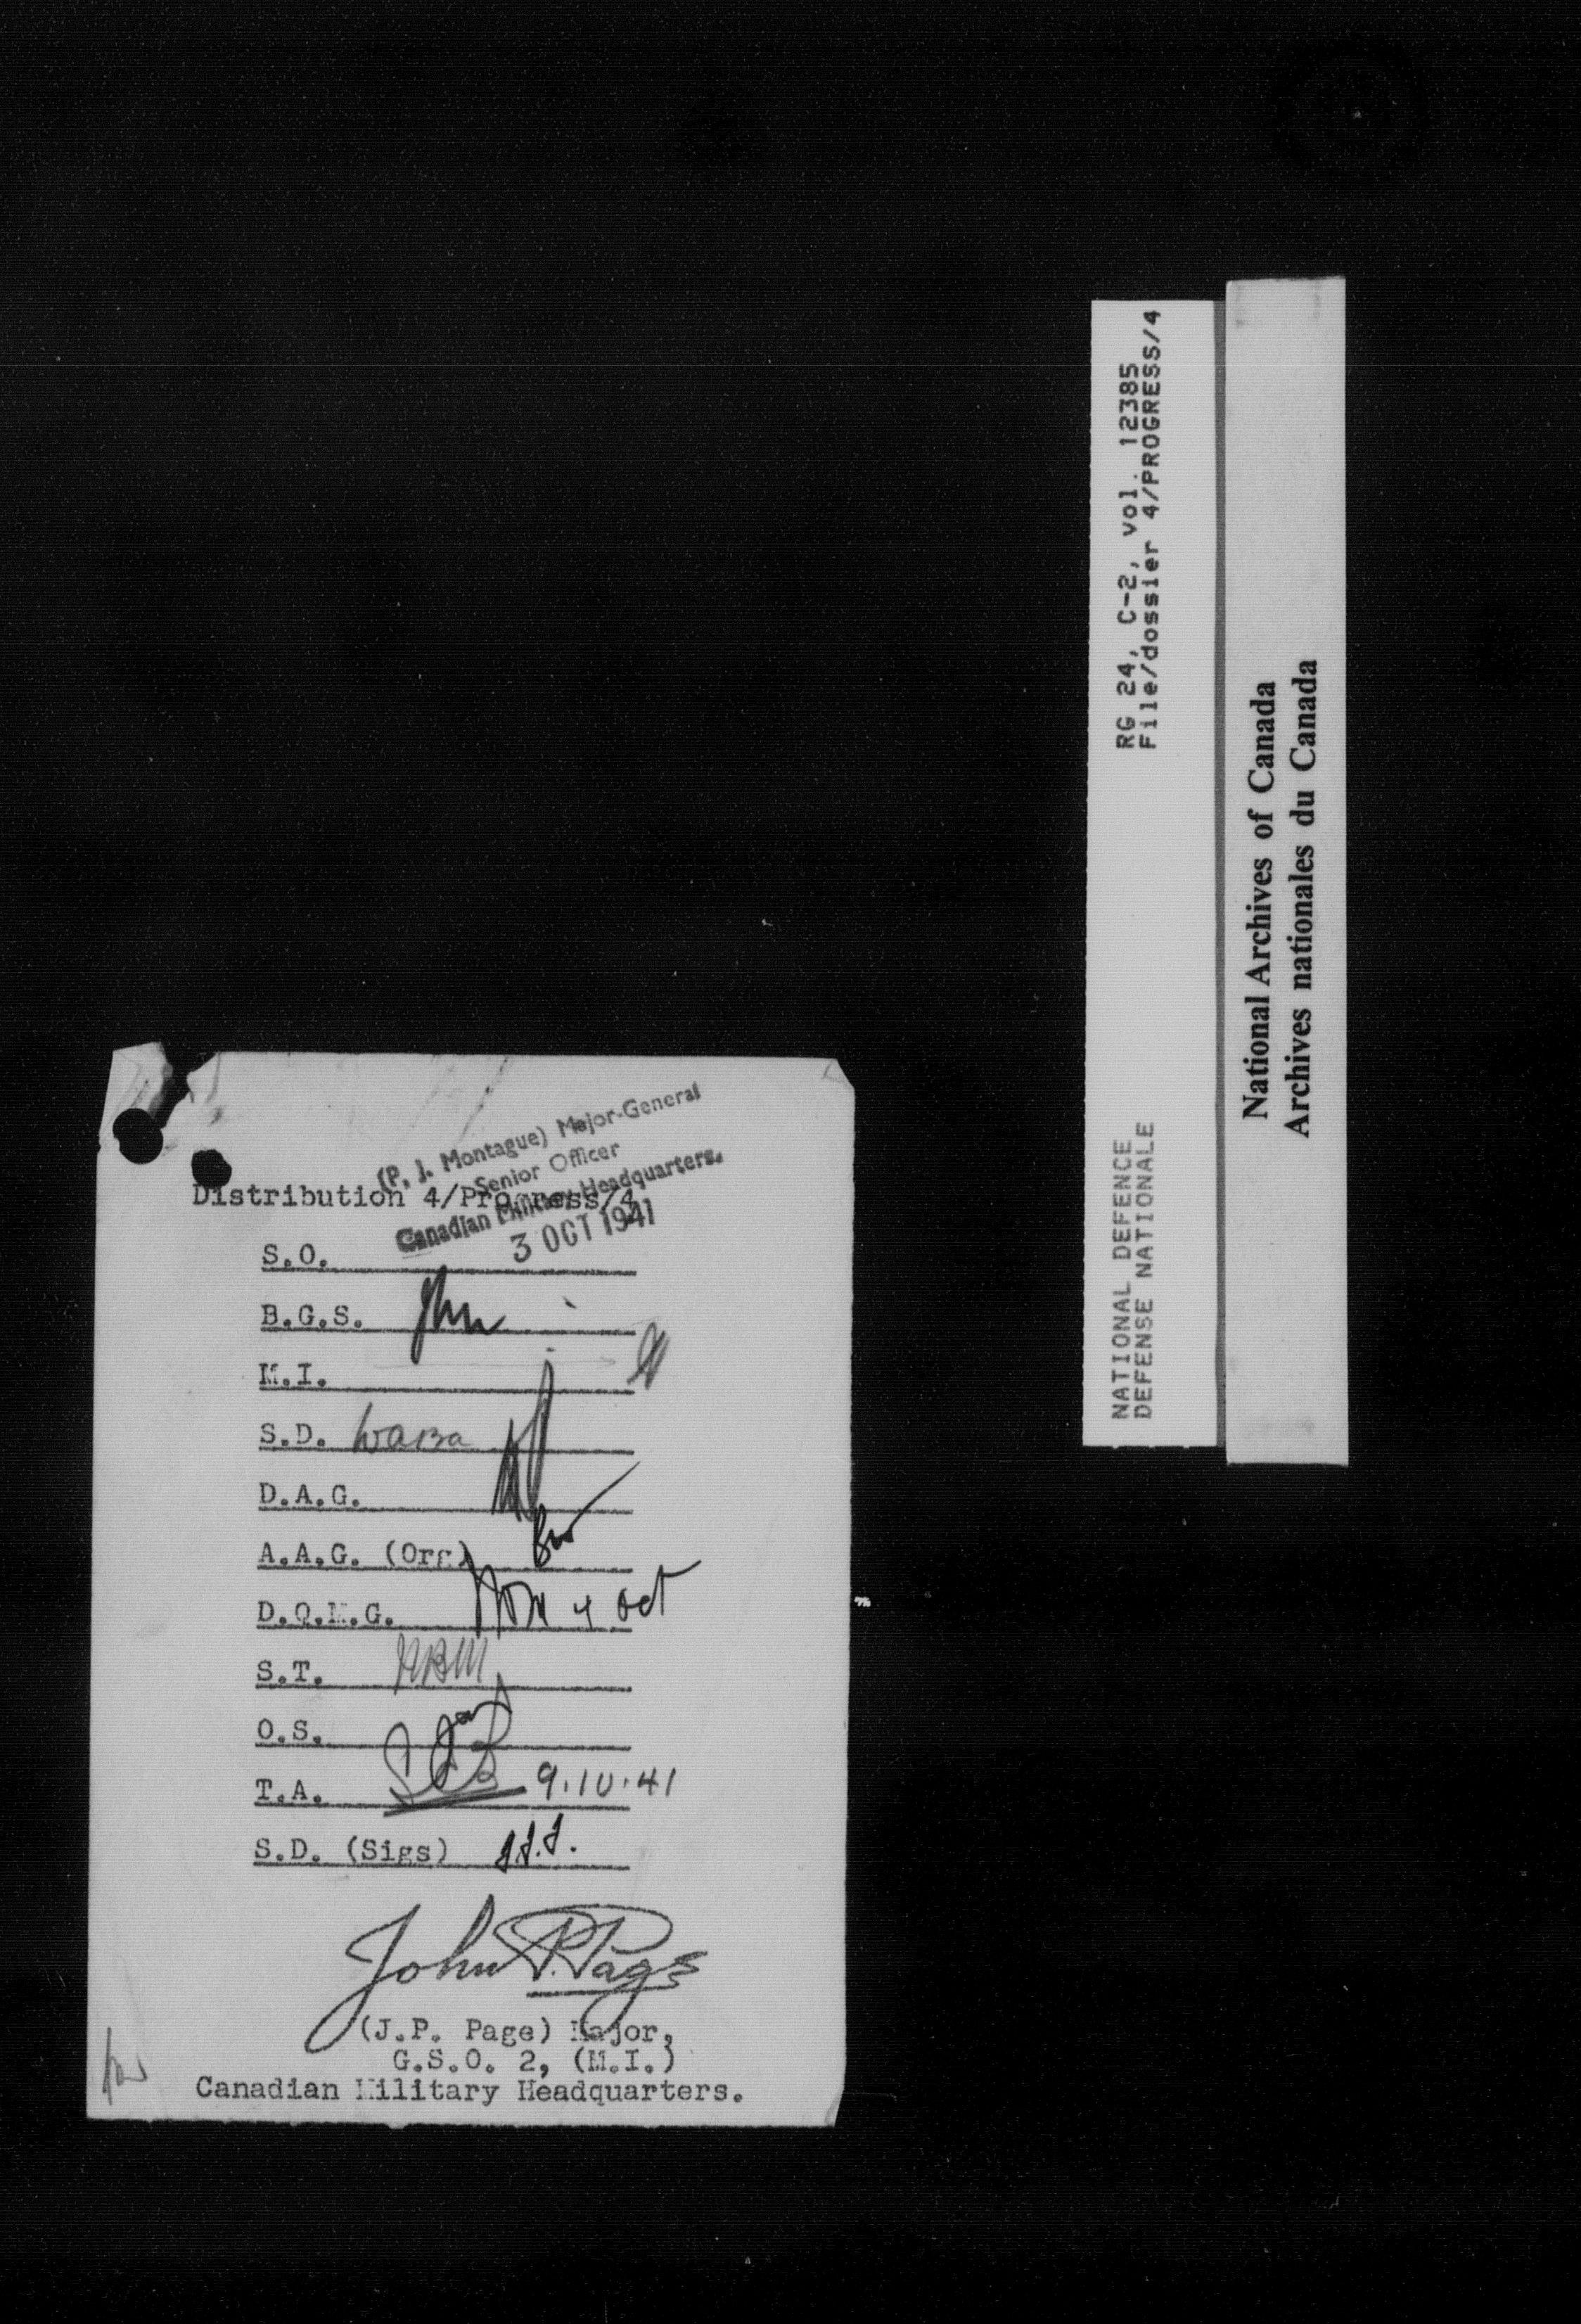 (P. J. Montague) Major-General
Senior Officer
Canadian Military Headquarters.
3 OCT 1941
Distribution 4/Progress/4
S.O.
B.G.S.
M.I.
S.D.
D.A.G.
A.A.G. (Org)
D.Q.M.G. 4 Oct
S.T.
O.S.
T.A. 9.10.41
S.D. (Sigs) J.J.J.
John P. Page
(J.P. Page) Major,
G.S.O. 2, (M.I.)
Canadian Military Headquarters.
RG 24, C-2, vol. 12385
File/dossier 4/PROGRESS/4
NATIONAL DEFENCE
DEFENSE NATIONALE
National Archives of Canada
Archives nationales du Canada